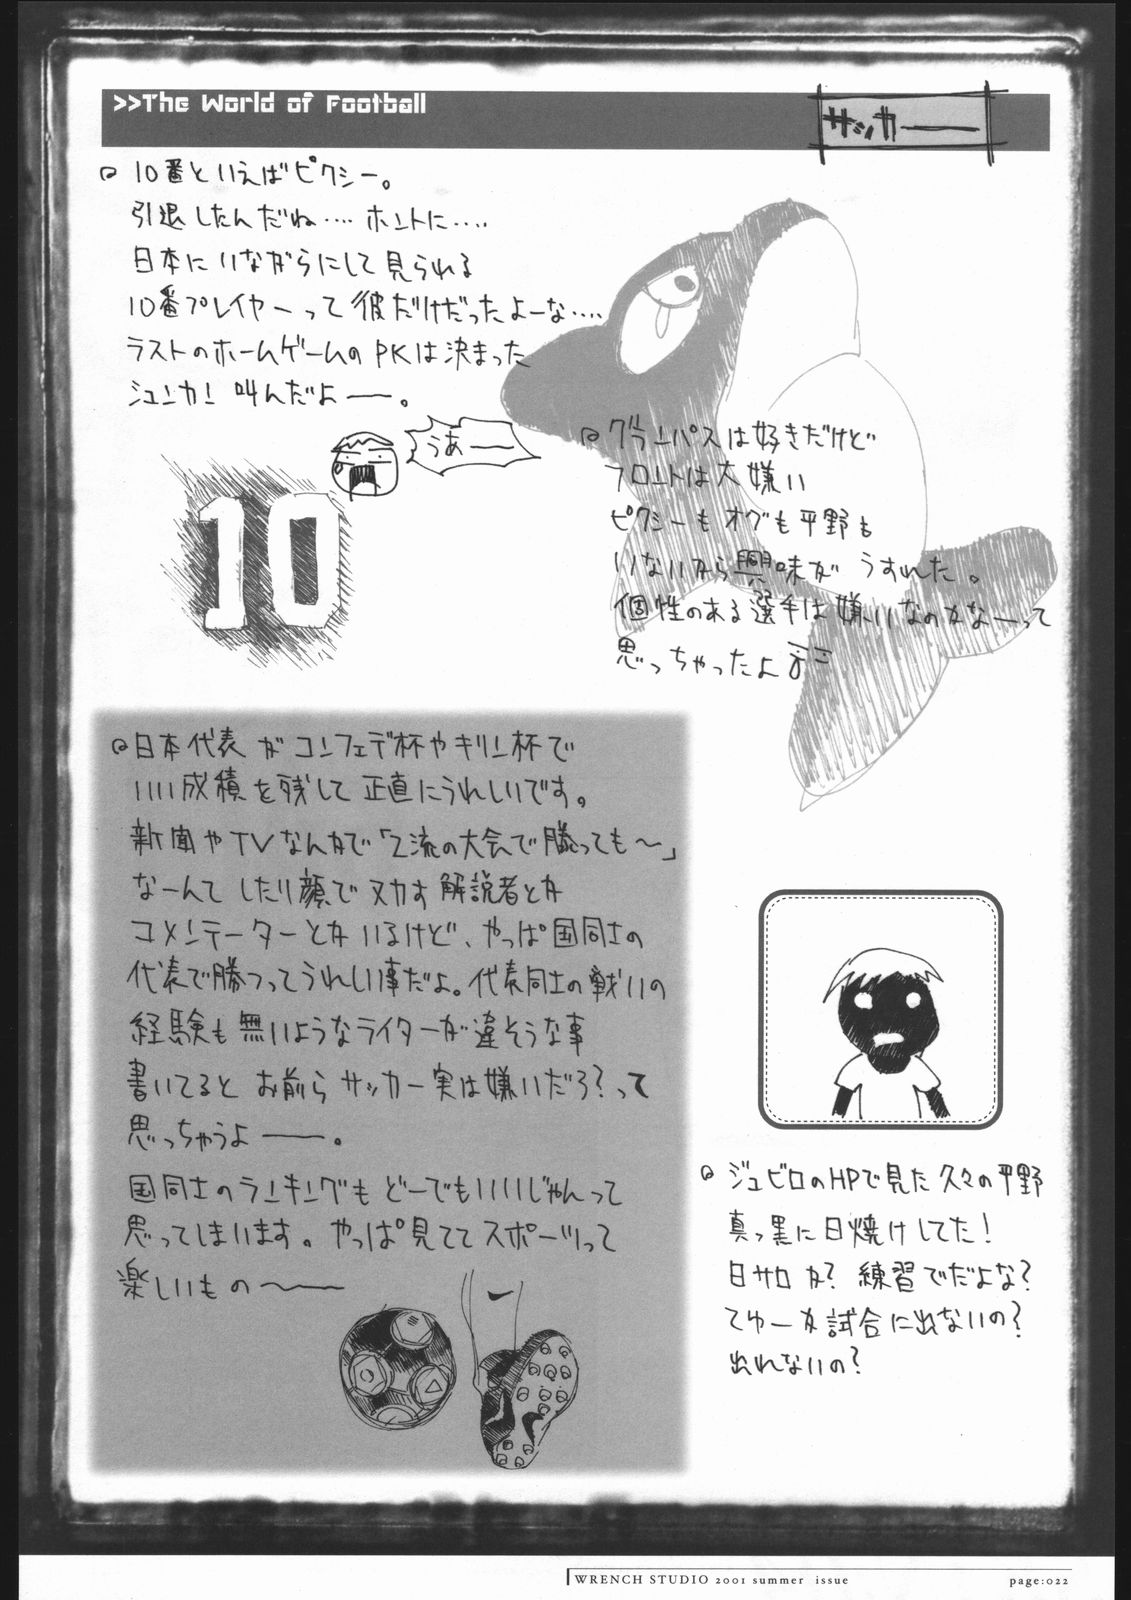 >>The World of Football
サッカー
10番といえばピクシー。
引退したんだね‥‥ホントに‥‥
日本にいながらにして見られる
10番プレイヤーって彼だけだったよーな‥‥
ラストのホームゲームのPKは決まった
シュンカン叫んだよ――。
うあ――
10
グランパスは好きだけど
フロントは大嫌い
ピクシーもオグも平野も
いないから興味がうすれた。
個性のある選手は嫌いなのかなーって
思っちゃったよ
日本代表がコンフェデ杯やキリン杯で
いい成績を残して正直にうれしいです。
新聞やTVなんかで「2流の大会で勝っても〜」
なーんてしたり顔でヌカす解説者とか
コメンテーターとかいるけど、やっぱ国同士の
代表で勝つってうれしい事だよ。代表同士の戦いの
経験も無いようなライターが違そうな事
書いてるとお前らサッカー実は嫌いだろ?って
思っちゃうよ――。
国同士のランキングもどーでもいいじゃんって
思ってしまいます。やっぱ見ててスポーツって
楽しいもの〜――
ジュビロのHPで見た久々の平野
真っ黒に日焼けしてた!
日サロか?練習でだよな?
てゆーか試合に出ないの?
出れないの?
WRENCH STUDIO 2001 summer issue
page:022